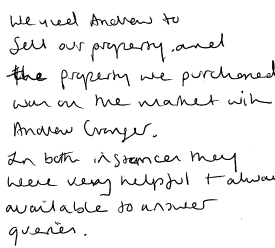 We used Andrew to
sell our property and
the property we purchased
was on the market with
Andrew Granger.
In both instances they
were very helpful + alway
available to answer
queries.